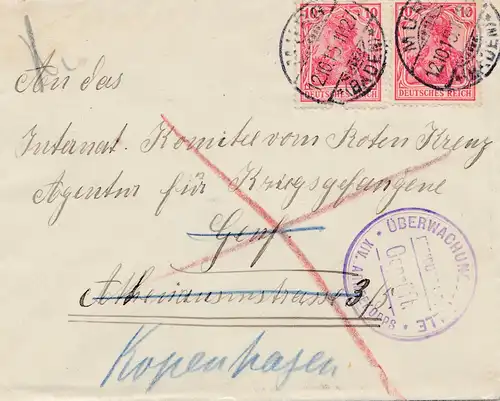 10 10
DEUTSCHES REICH DEUTSCHES REICH
12.10.15. 12.10.15.
(BADEN) (BADEN)
An das
Internat. Komitee vom Roten Kreuz
Agentur für Kriegsgefangene
Genf
3
Kopenhagen
ÜBERWACHUNGS
XIV. ARMEEKORPS
Geprüft